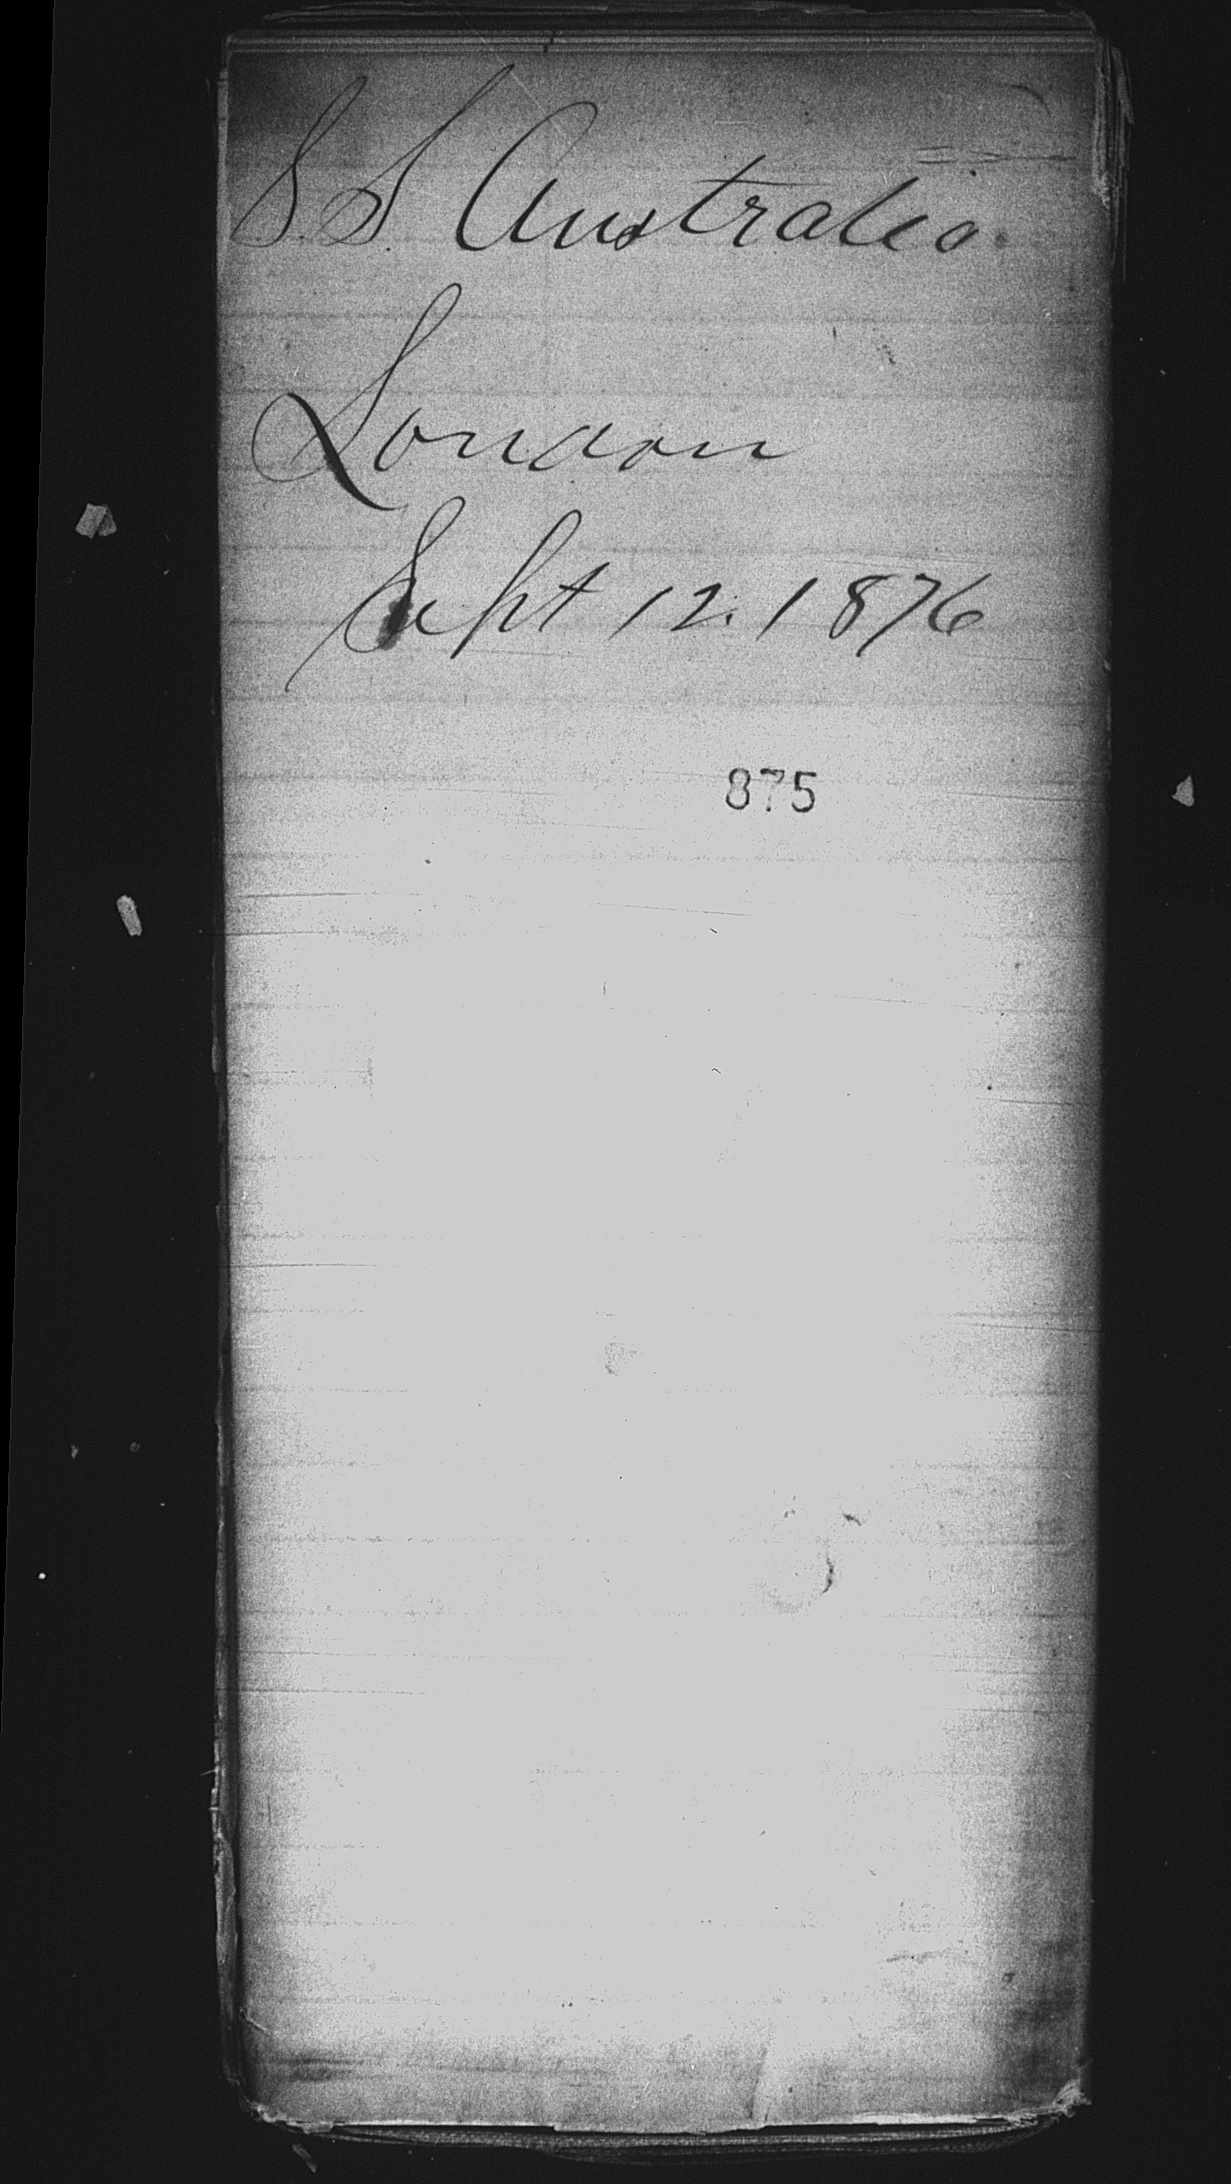 S.S. Australia.
London
Sept 12. 1876
875